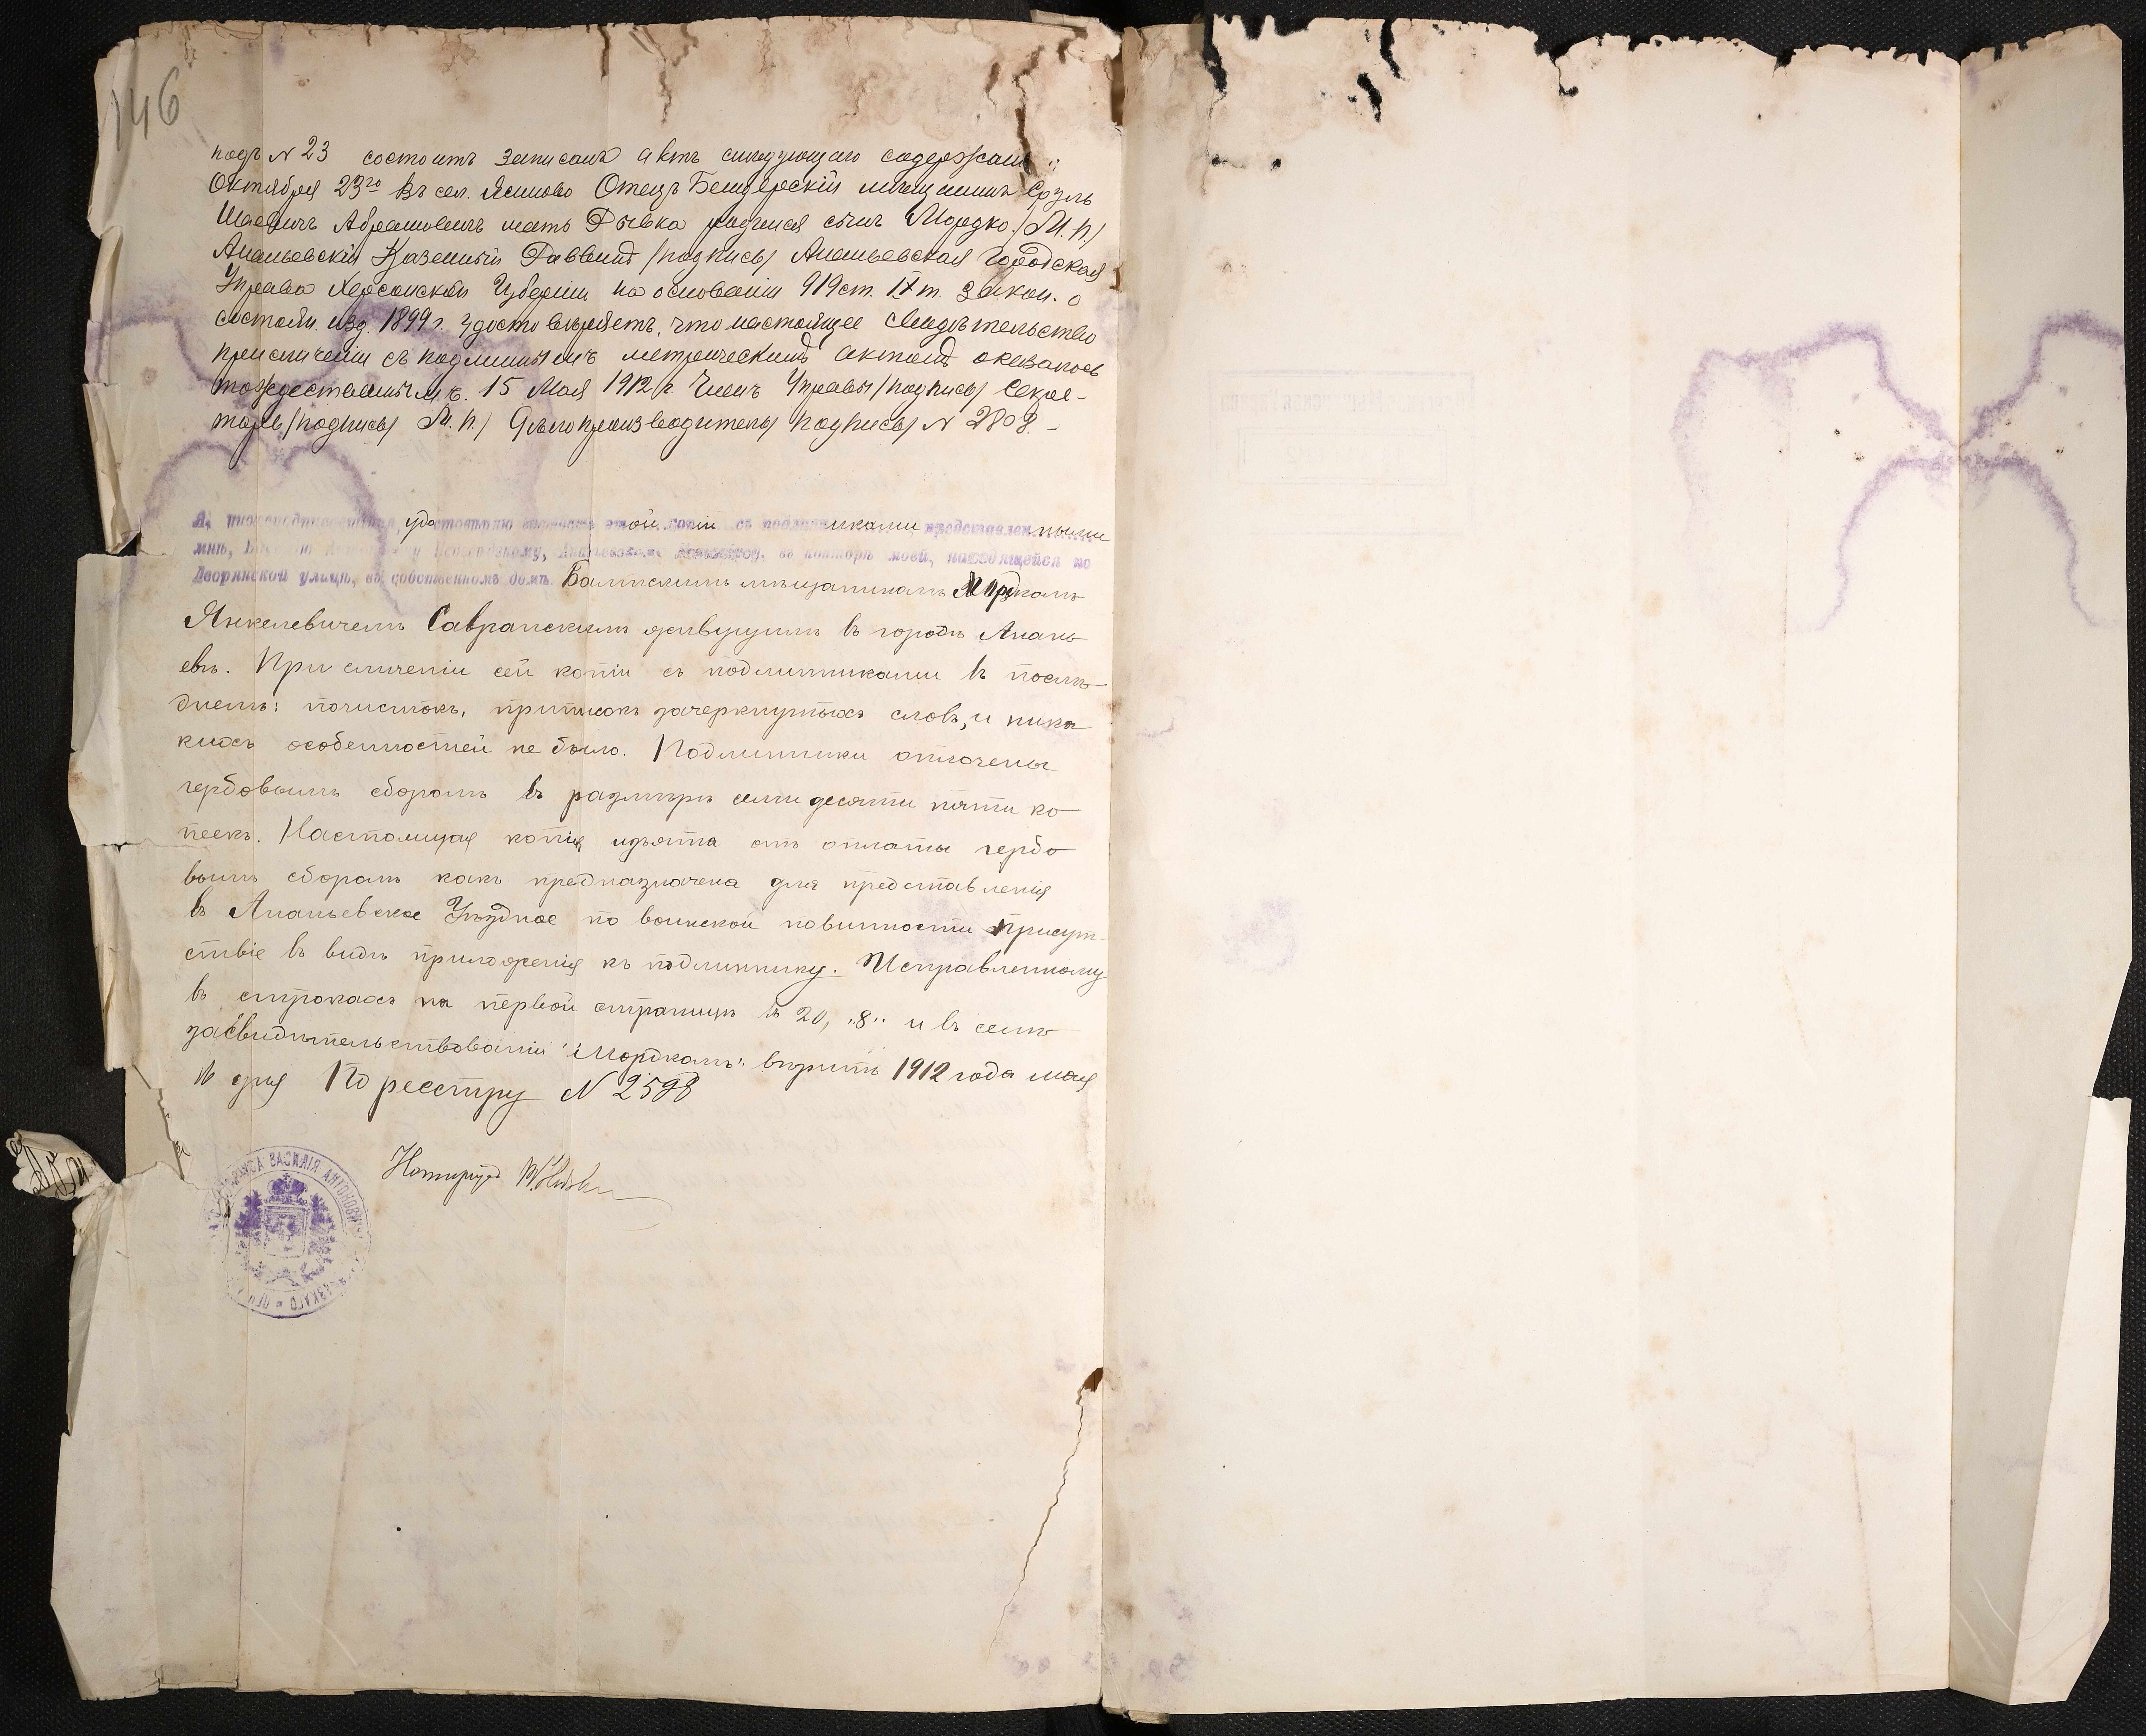 146
подъ N 23 состоитъ записанъ актъ слѣдующаго содержанія:
Октября 23го въ сел. Ясиново Отецъ Бендерскій мѣщанинъ Сруль
Абрамовичъ мать Рывка родился сынъ Мордко. /М. п./
Ананьевскій Казенный Раввинъ /подпись/ Ананьевская Городская
Управа Херсонской Губерніи на основаніи 919 ст. IX т. Закон. о
состоян. изд. 1899 г. удостовѣряетъ, что настоящее свидѣтельство
при сличеніи съ подлиннымъ метрическимъ актомъ оказалось
тождественнымъ. 15 Мая 1912 г. Членъ Управы /подпись/ Секре-
тарь /подпись/ М. п./ Дѣлопроизводитель /подпись/ N 2808. -
Я, нижеподписавшійся, удостовѣряю вѣрность этой копіи съ подлинниками, представленными
мнѣ, у Ананьевскому Нотаріусу, въ конторѣ моей, находящейся по
Дворянской улицѣ, въ собственномъ домѣ Балтскимъ мѣщаниномъ Мордкомъ
Янкелевичемъ Савранскимъ живущимъ въ городѣ Анань
евѣ. При сличеніи сей копіи съ подлинниками въ послѣ
днемъ: почистокъ, приписокъ зачеркнутыхъ словъ, и ника
кихъ особенностей не было. Подлинники оплочены
гербовымъ сборомъ въ размѣрѣ семидесяти пяти ко
пеекъ. Настоящая копія изъята отъ оплаты гербо
вымъ сборомъ какъ предназначена для представленія
въ Ананьевское Уѣздное по воинской повинности Присут-
ствіе въ видѣ приложенія къ подлиннику. Исправленному
въ строкахъ на первой страницѣ въ 20, "8" и въ семъ
засвидѣтельствованіи "Мордкомъ" вѣрить 1912 года мая
16 дня По реестру N 2598
Нотаріусъ
НОТАРІУСА ВАСИЛІЯ АНТОНОВИЧА